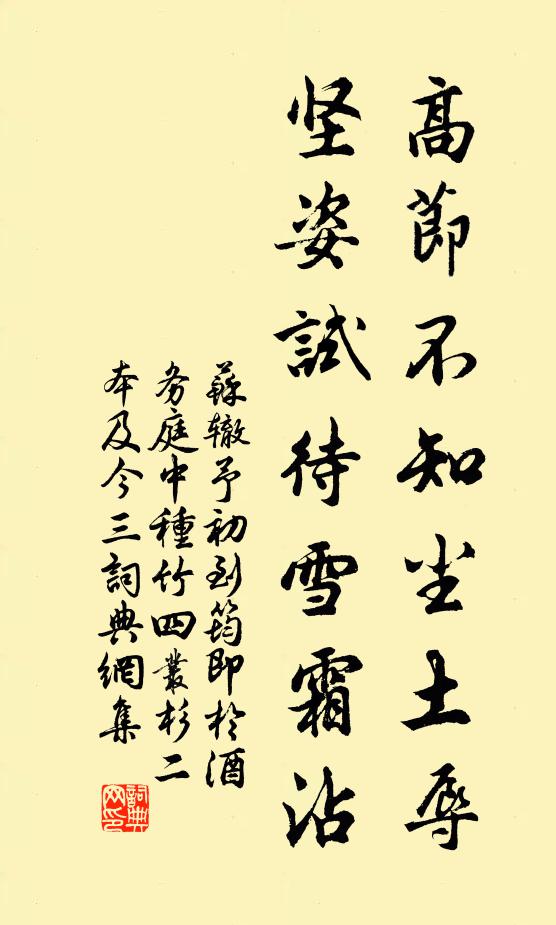 高節不知尘土辱
坚姿試待雪霜沾
蘇辙予初到筠即於酒
务庭中種竹四叢杉二
本及今三詞典網集
詞典网印